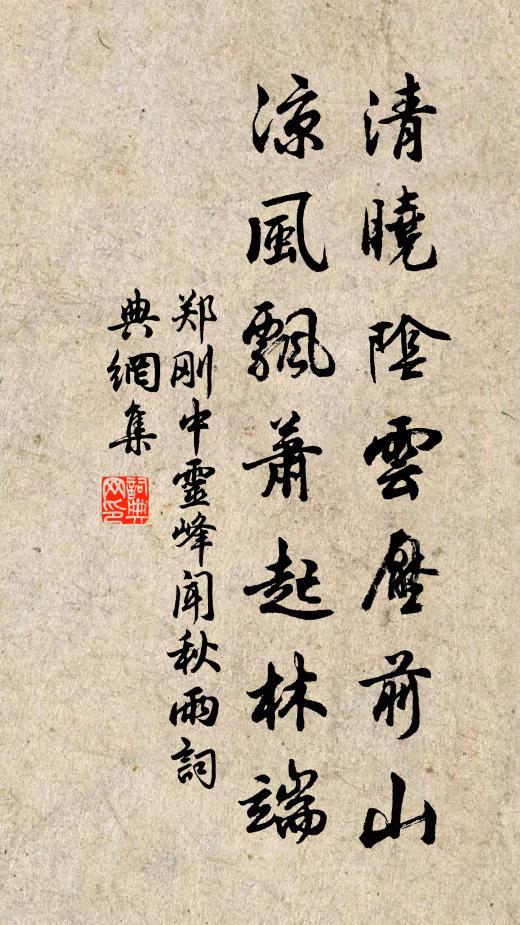 清曉陰雲壓前山
涼風飄蕭起林端
郑刚中靈峰闻秋雨詞
典網集
詞典
网印